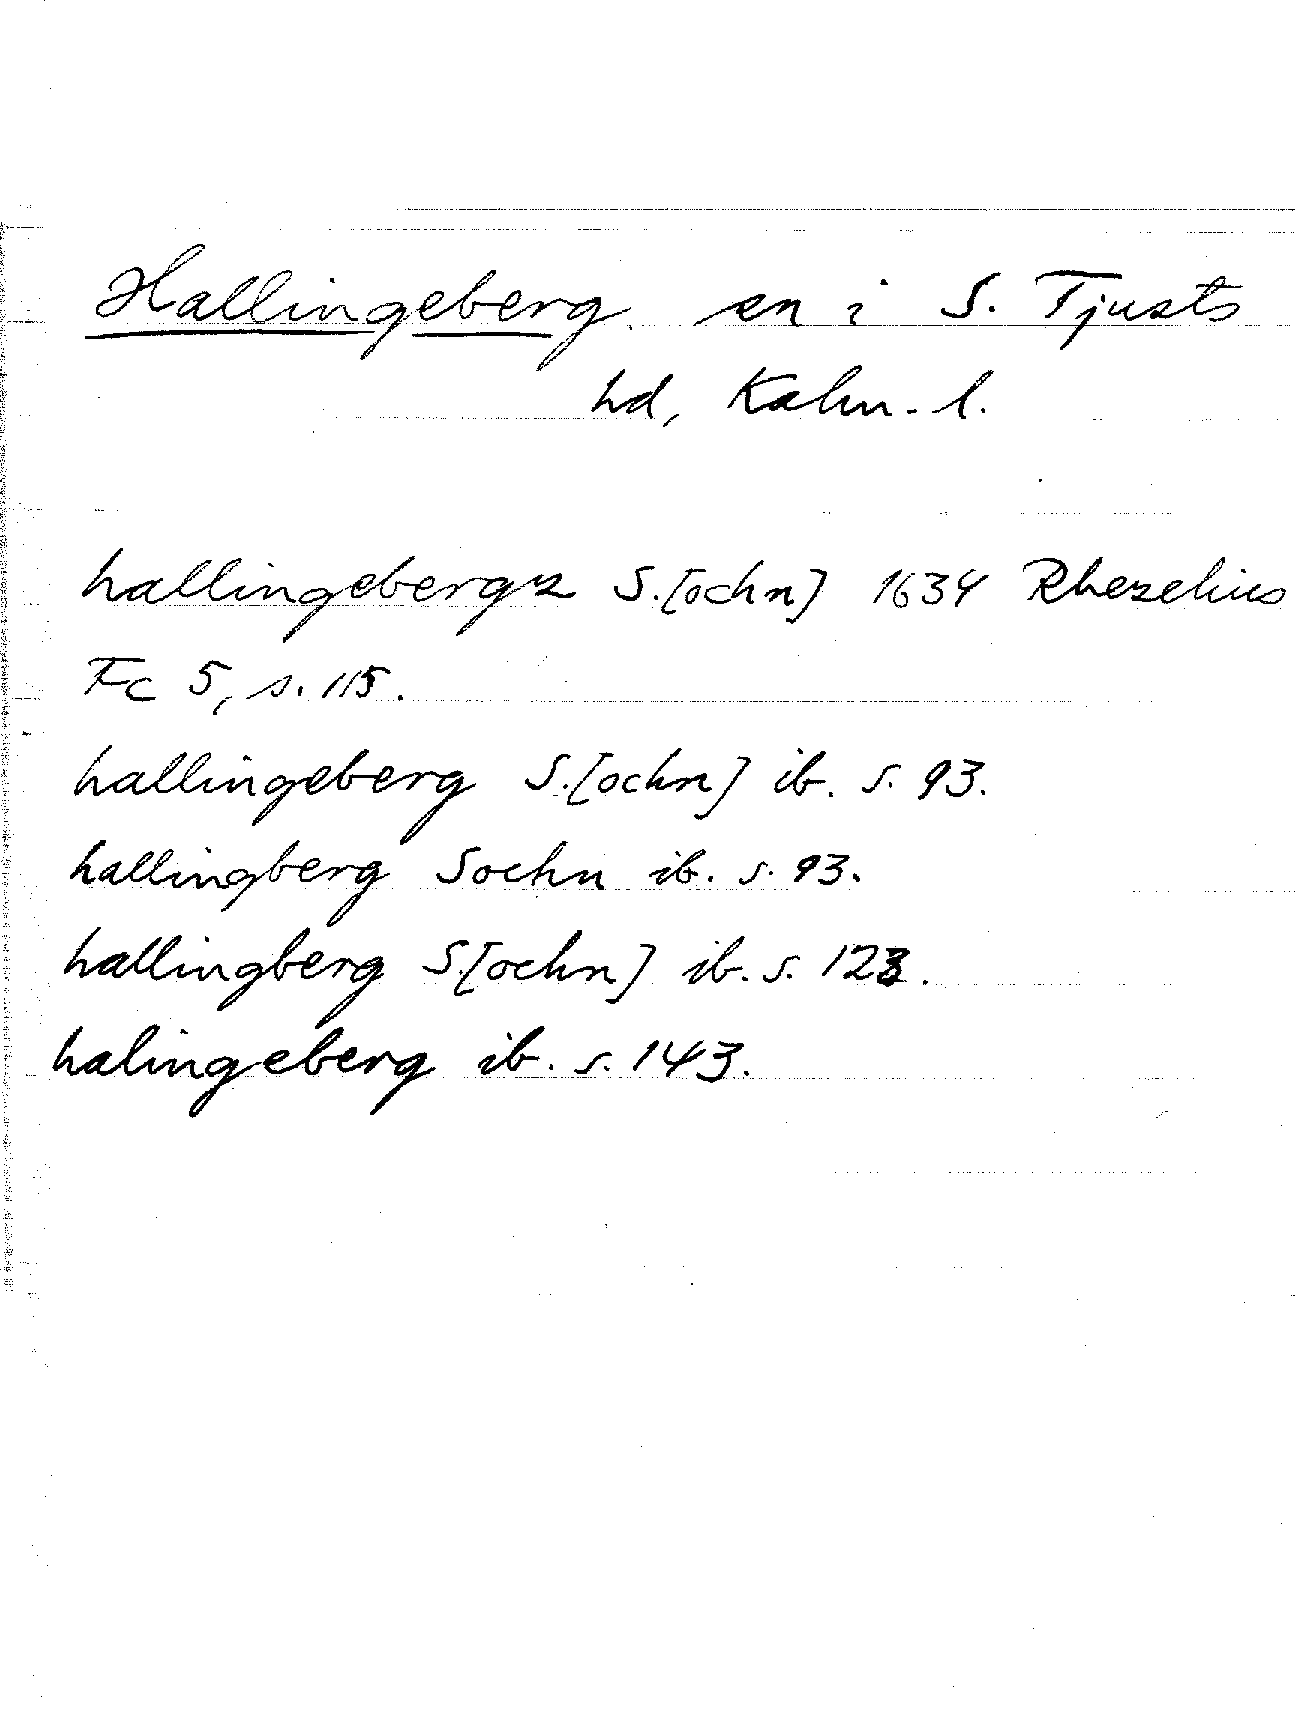 Hallingeberg sn i S. Tjusts
hd, Kalm. l.
hallingebergz S.[ochn] 1634 Rhezelius
Fc 5, s. 115.
hallingeberg S.[ochn] ib. s. 93.
hallingberg Sochn ib. s. 93.
hallingberg S.[ochn] ib. s. 123.
halingeberg ib. s. 143.